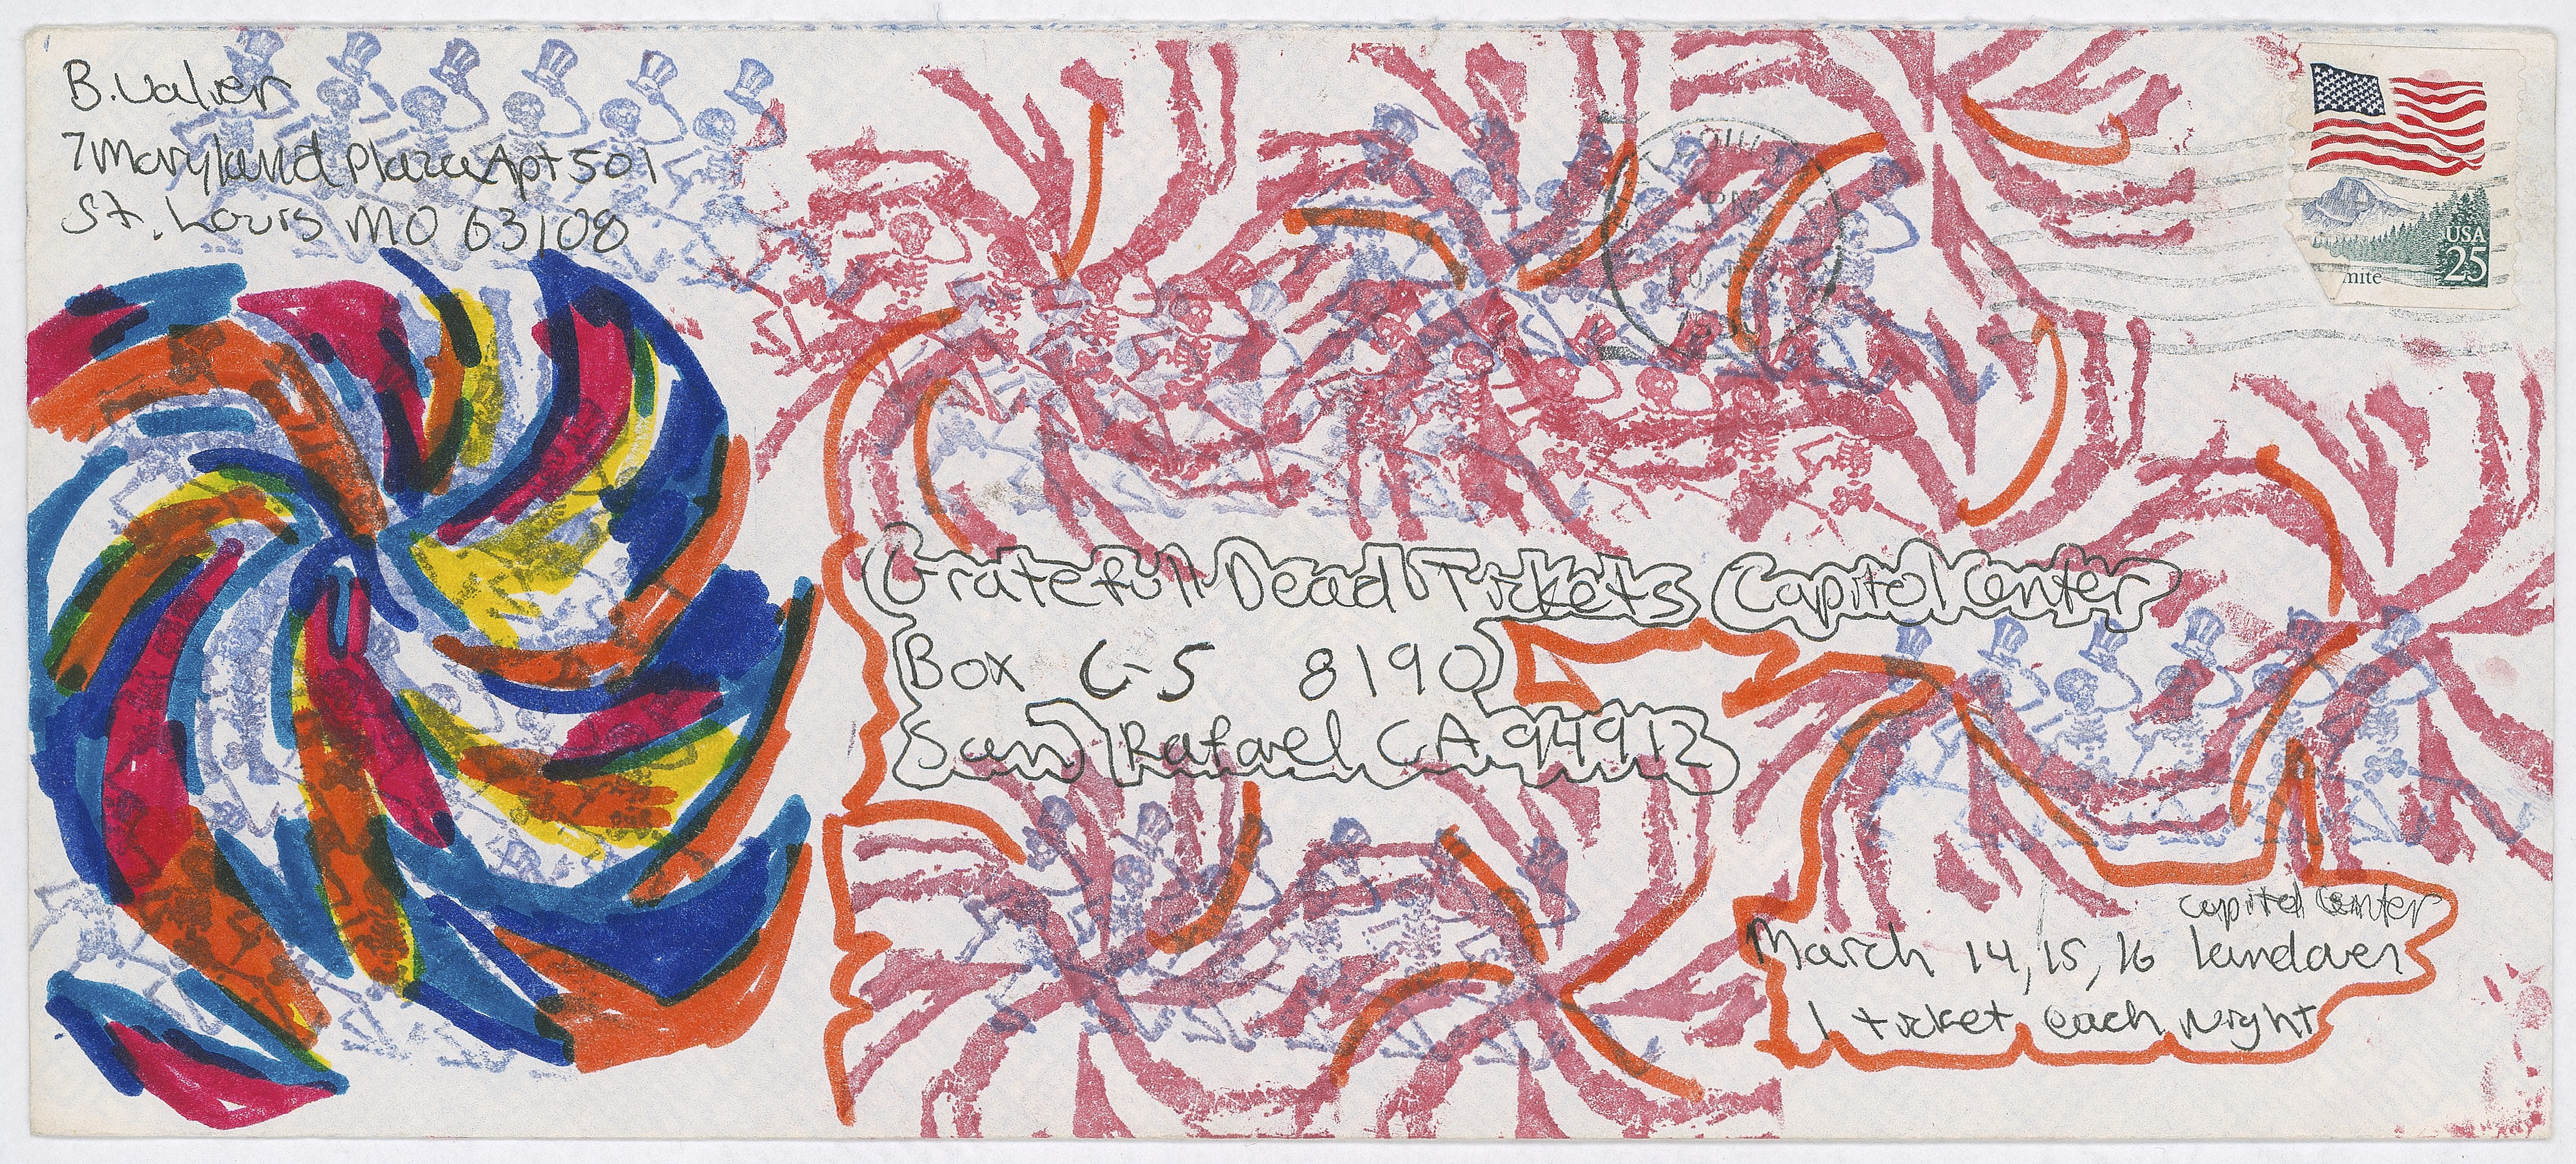 B. Valier
7 Maryland Plaza Apt 501
St. Louis MO 63108
USA
25
mite
Gratefull Dead Tickets Capitol Center
Box C-S 8190
San Rafael CA 94912
Capitol Center
March 14, 15, 16 Landover
1 ticket each night